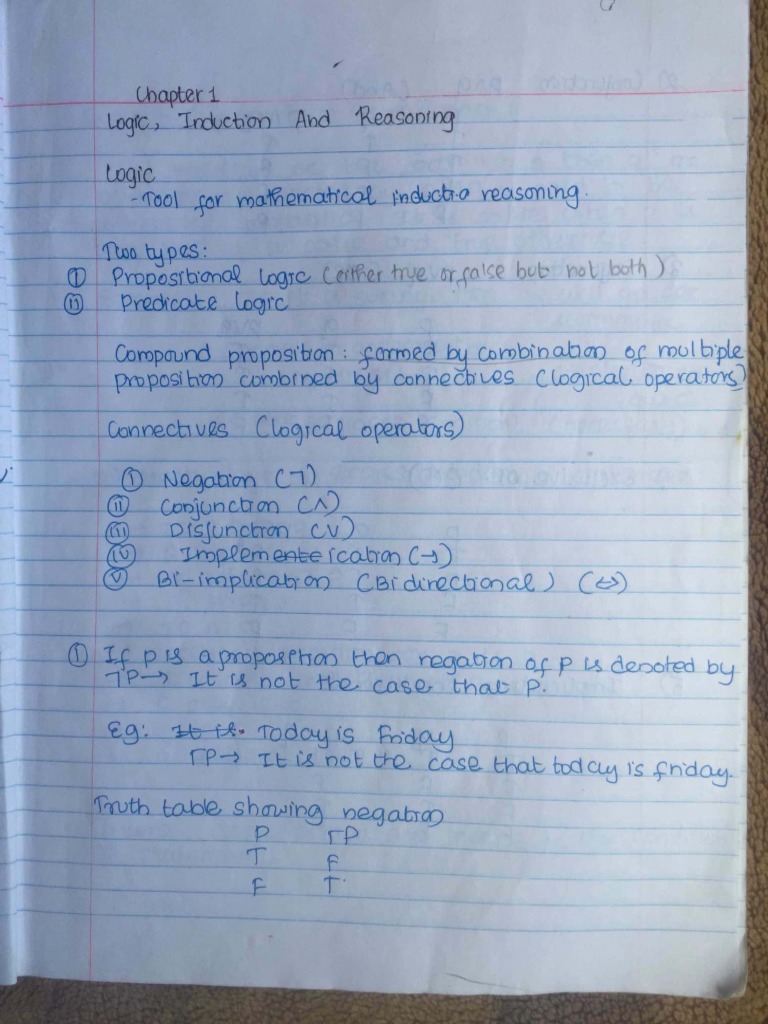 Chapter 1
Logic, Induction And Reasoning
Logic
- Tool for mathematical inductio reasoning.
Two types:
(i) Propositional logic (either true or false but not both)
(ii) Predicate logic
Compound proposition : formed by combination of multiple
proposition combined by connectives (logical operators)
Connectives (logical operators)
(i) Negation (¬)
(ii) Conjunction (∧)
(iii) Disjunction (∨)
(iv) Implemente ication (→)
(v) Bi-implication (Bidirectional) (⇔)
(i) If p is a proposition then negation of p is denoted by
¬P → It is not the case that P.
Eg: It is. Today is Friday
¬P → It is not the case that today is friday.
Truth table showing negation
P ¬P
T F
F T